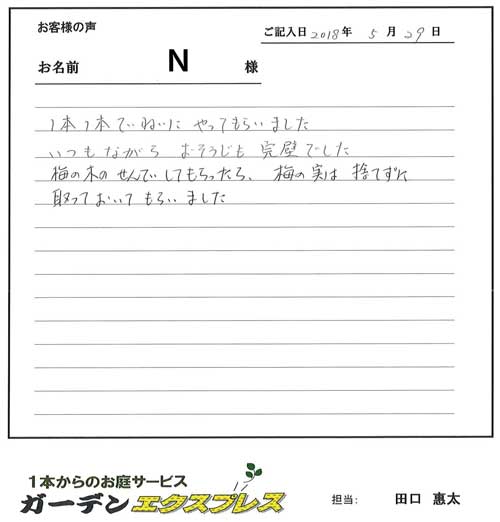 お客様の声
ご記入日 2018年 5月29日
お名前 N 様
1本1本ていねいに やってもらいました
いつもながら おそうじも 完璧でした
梅の木の せんていしてもらったら、 梅の実は 捨てずに
取っておいて もらいました
1本からのお庭サービス
ガーデンエクスプレス
担当: 田口 惠太